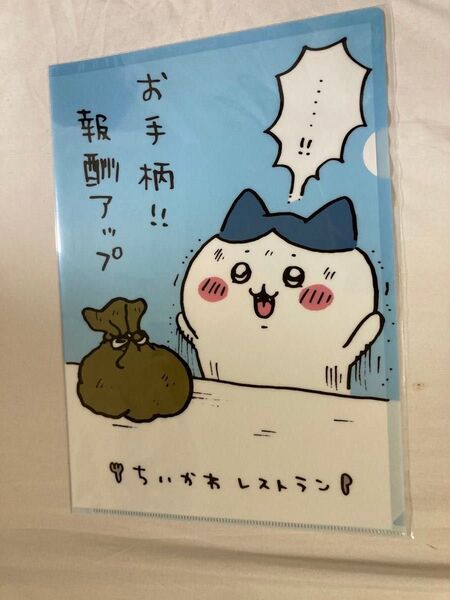 お手柄!!
報酬アップ
……!!
ちいかわレストラン